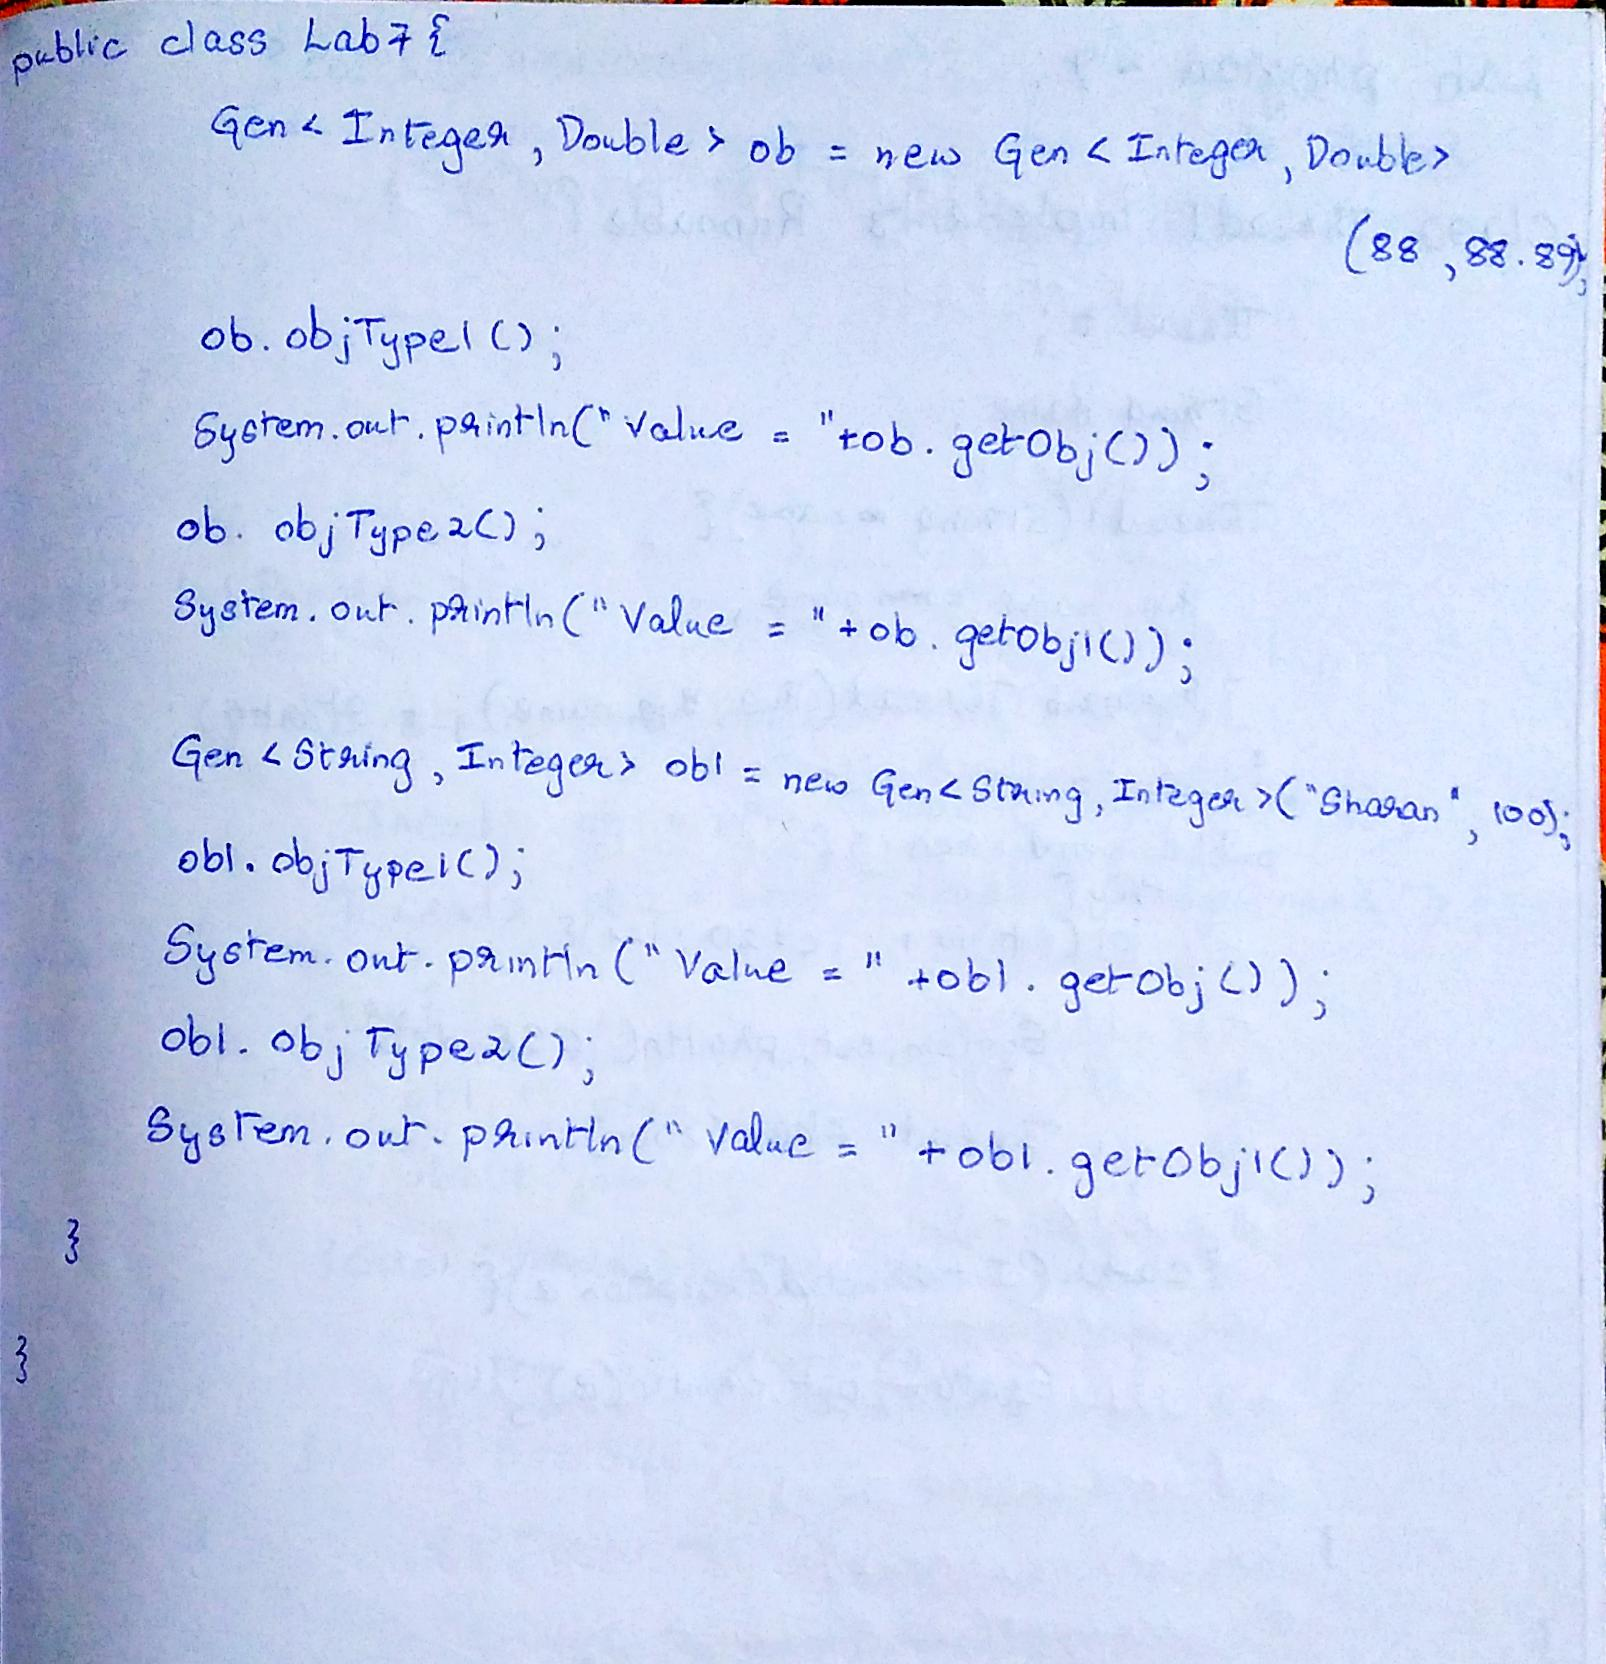 public class Lab7{
Gen < Integer, Double > ob = new Gen < Integer, Double>
(88, 88.89);
ob. objType1();
System.out.println("Value = "+ob. getObj());
ob. objType2();
System.out.println("Value = "+ob. getObj1());
Gen < String, Integer> ob1 = new Gen< String, Integer >("Sharan", 100);
ob1. objType1();
System.out.println("Value = " +ob1. getObj());
ob1. objType2();
System.out.println("Value = "+ob1.getObj1());
}
}